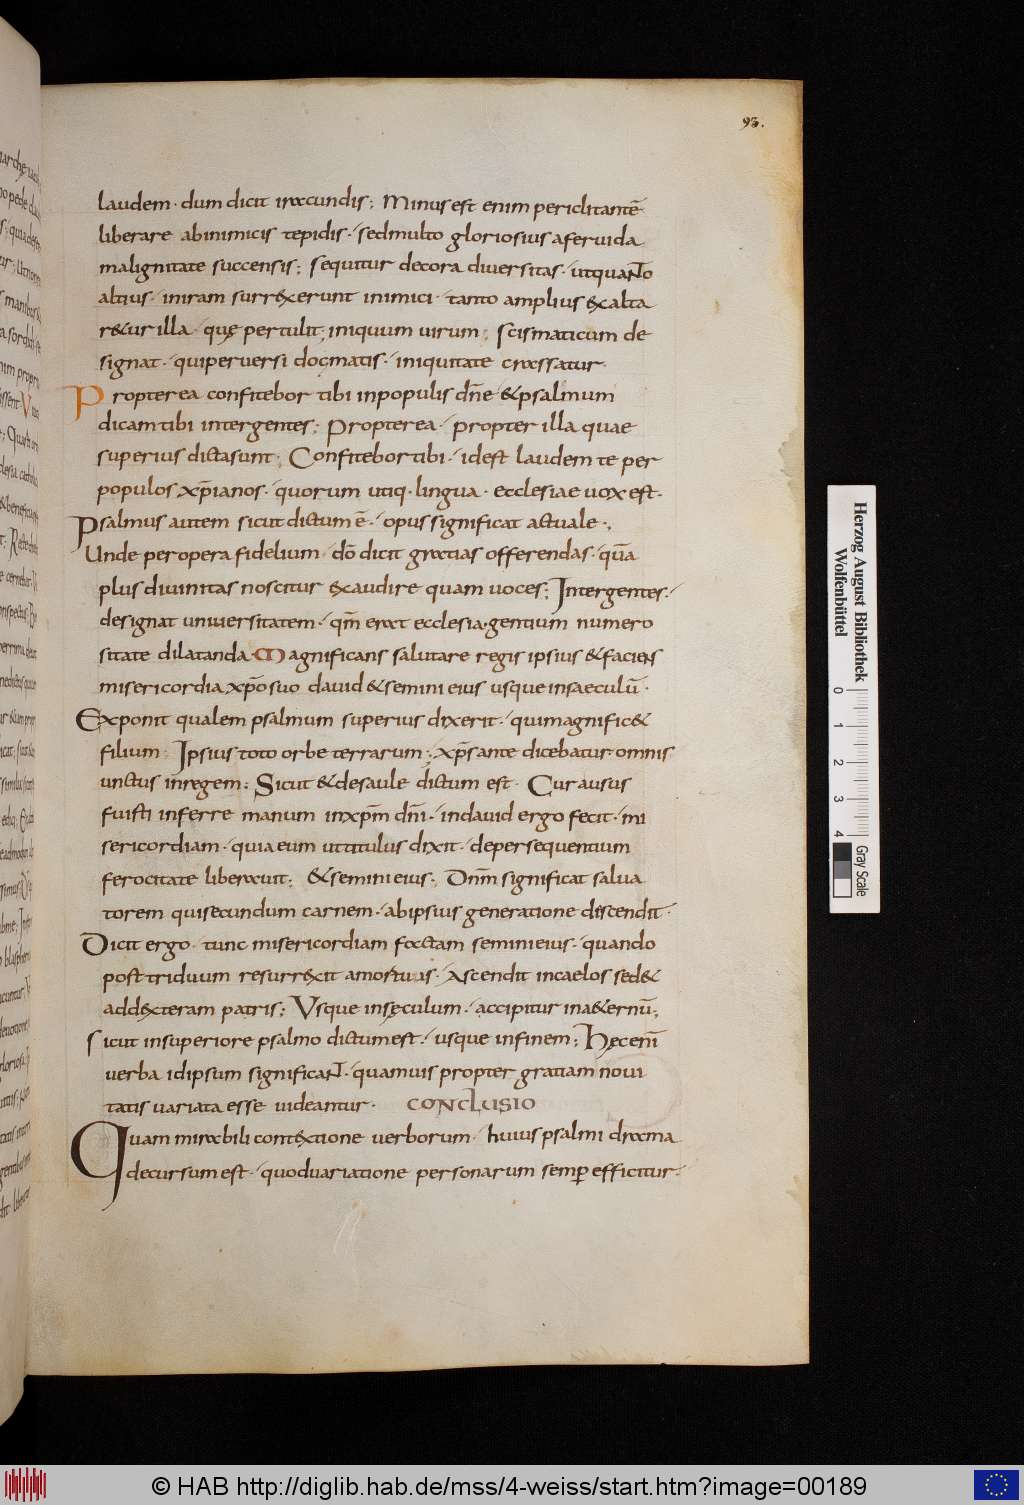 93.
laudem · dum dicit iracundis ; Minus est enim periclitantē
liberare abinimicis tepidis · sedmulto gloriosius afervida
malignitate succensis ; sequitur decora diversitas · utquanto
altius · iniram surrexerunt inimici · tanto amplius exalta
retur illa · quę pertulit ; iniquum uirum ; scismaticum de
signat · quiperversi docmatis · iniquitate crassatur ·
Propterea confitebor tibi inpopulis dn̄e &psalmum
dicamtibi intergentes ; Propterea · propter illa quae
superius dictasunt ; Confitebortibi · idest laudem te per
populos xp̄ianos · quorum utiq · lingua · ecclesiae uox est ·
Psalmus autem sicut dictum ē · opus significat actuale ·,
Unde peropera fidelium · dō dicit gratias offerendas · quā
plus divinitas noscitur exaudire quam uoces ; Intergentes ·
designat universitatem · qm̄ erat ecclesia · gentium numero
sitate dilatanda · Magnificans salutare regis ipsius &faciens
misericordia xp̄o suo david &semini eius usque insaeculū ·
Exponit qualem psalmum superius dixerit · quimagnific&
filium ; Ipsius toto orbe terrarum ; xp̄s ante dicebatur omnis
unctus inregem ; Sicut &desaule dictum est · Cur ausus
fuisti inferre manum inxp̄m dn̄i · indavid ergo fecit · mi
sericordiam · quia eum uttitulus dixit · depersequentium
ferocitate liberavit ; &semini eius ; Dn̄m significat salua
torem quisecundum carnem · abipsius generatione discendit ·
Dicit ergo · tunc misericordiam factam semini eius · quando
post triduum resurrexit amortuis · Ascendit incaelos sed&
addexteram patris ; Usque insęculum · accipitur ina&ernū ;
Sicut insuperiore psalmo dictumest · usque infinem ; Hęc enī
uerba idipsum significant · quamuis propter gratiam noui
tatis uariata esse uideantur · CONCLUSIO
Quam mirabili contextione uerborum · huius psalmi drama
decursum est · quoduariatione personarum semp̄ efficitur ·
Herzog August Bibliothek
Wolfenbüttel
0 1 2 3 4
Gray Scale
© HAB http://diglib.hab.de/mss/4-weiss/start.htm?image=00189